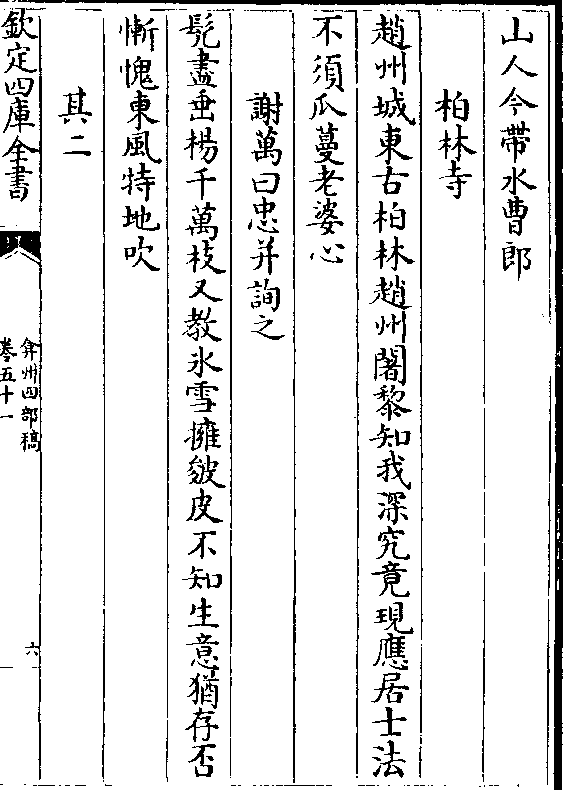 山人今帶水曹郎
柏林寺
趙州城東古柏林趙州闍黎知我深究竟現應居士法
不須瓜蔓老婆心
謝萬曰忠并詢之
髠盡垂楊千萬枝又教氷雪擁皴皮不知生意猶存否
慚愧東風特地吹
其二
欽定四庫全書
弇州四部稿
卷五十一
六